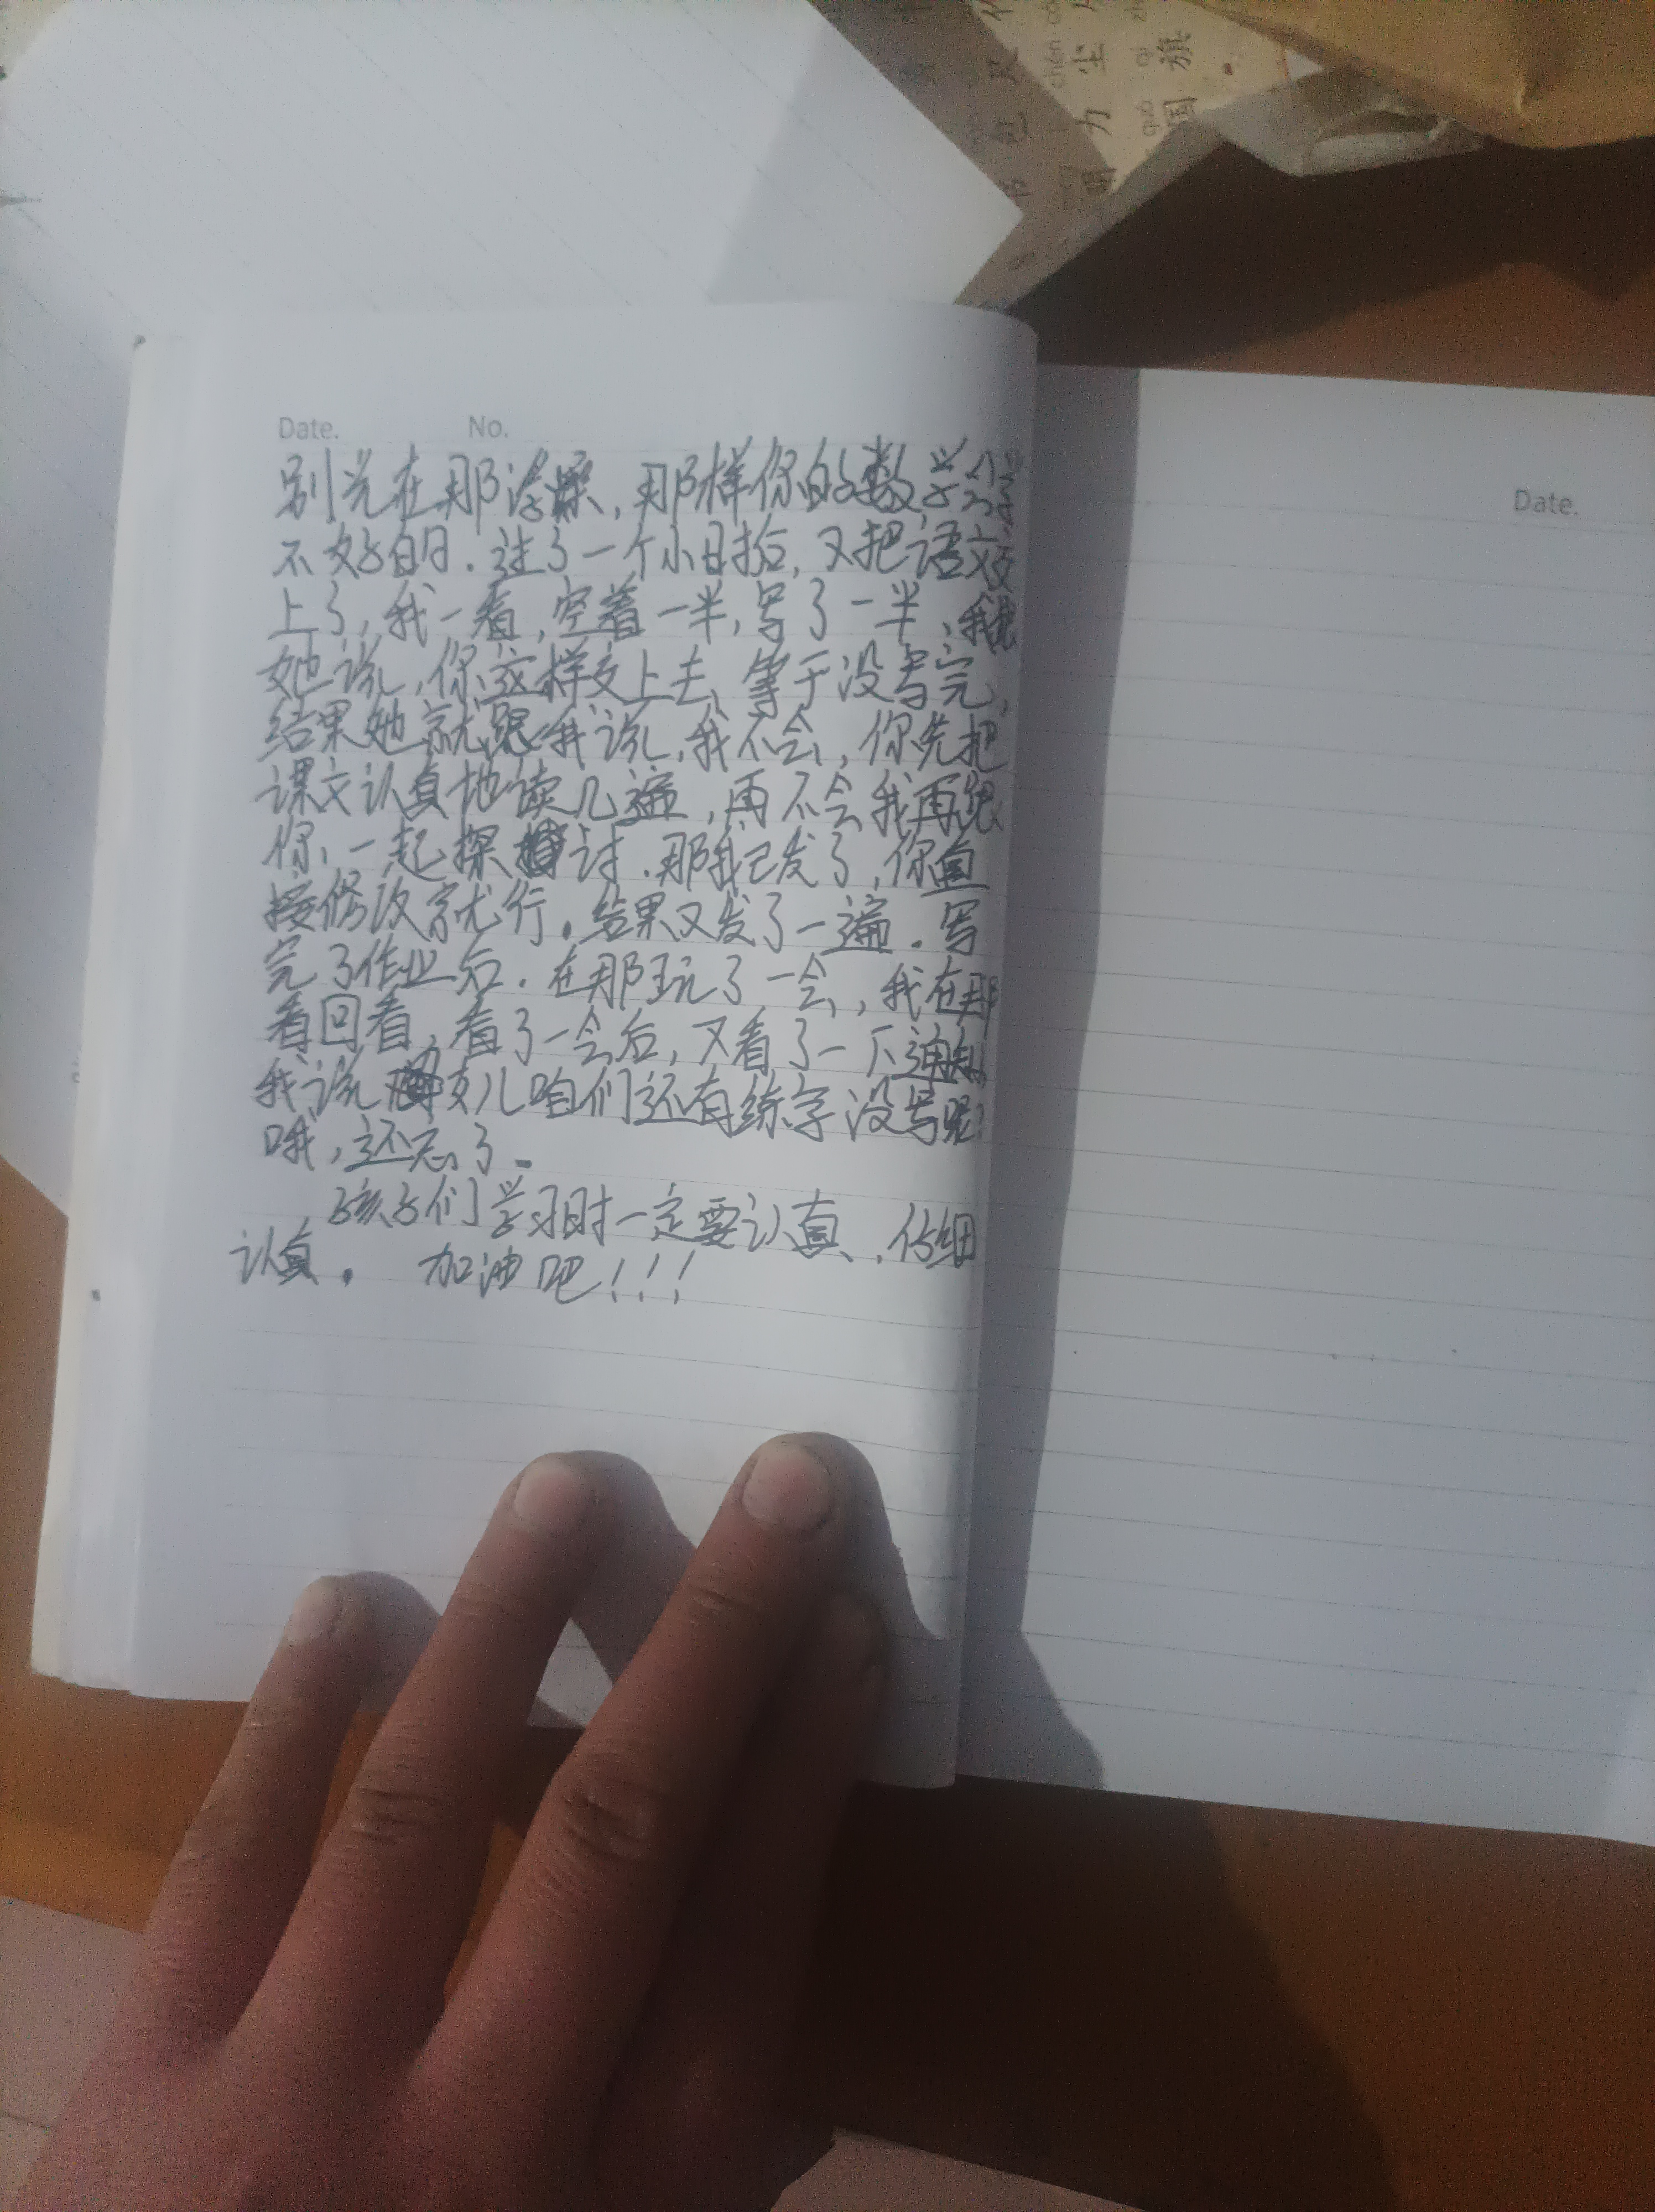 Date. No.
别光在那涂, 那样你的数学会学
不好的. 过了一个小时后, 又把语文交
上了, 我一看, 空着一半, 写了一半, 我跟
她说, 你这样交上去, 等于没写完,
结果她就跟我说, 我不会, 你先把
课文认真地读几遍, 再不会我再跟
你, 一起探讨. 那我已发了, 你直
接修改就行. 结果又发了一遍. 写
完了作业后. 在那玩了一会, 我在那
看回看, 看了一会后, 又看了一下通知
我说 女儿咱们还有练字没写呢!
哦, 还忘了.
孩子们学习时一定要认真, 仔细
认真. 加油吧!!!
Date.
尺
chén
尘
力
明
包
书
qí
旗
guó
国